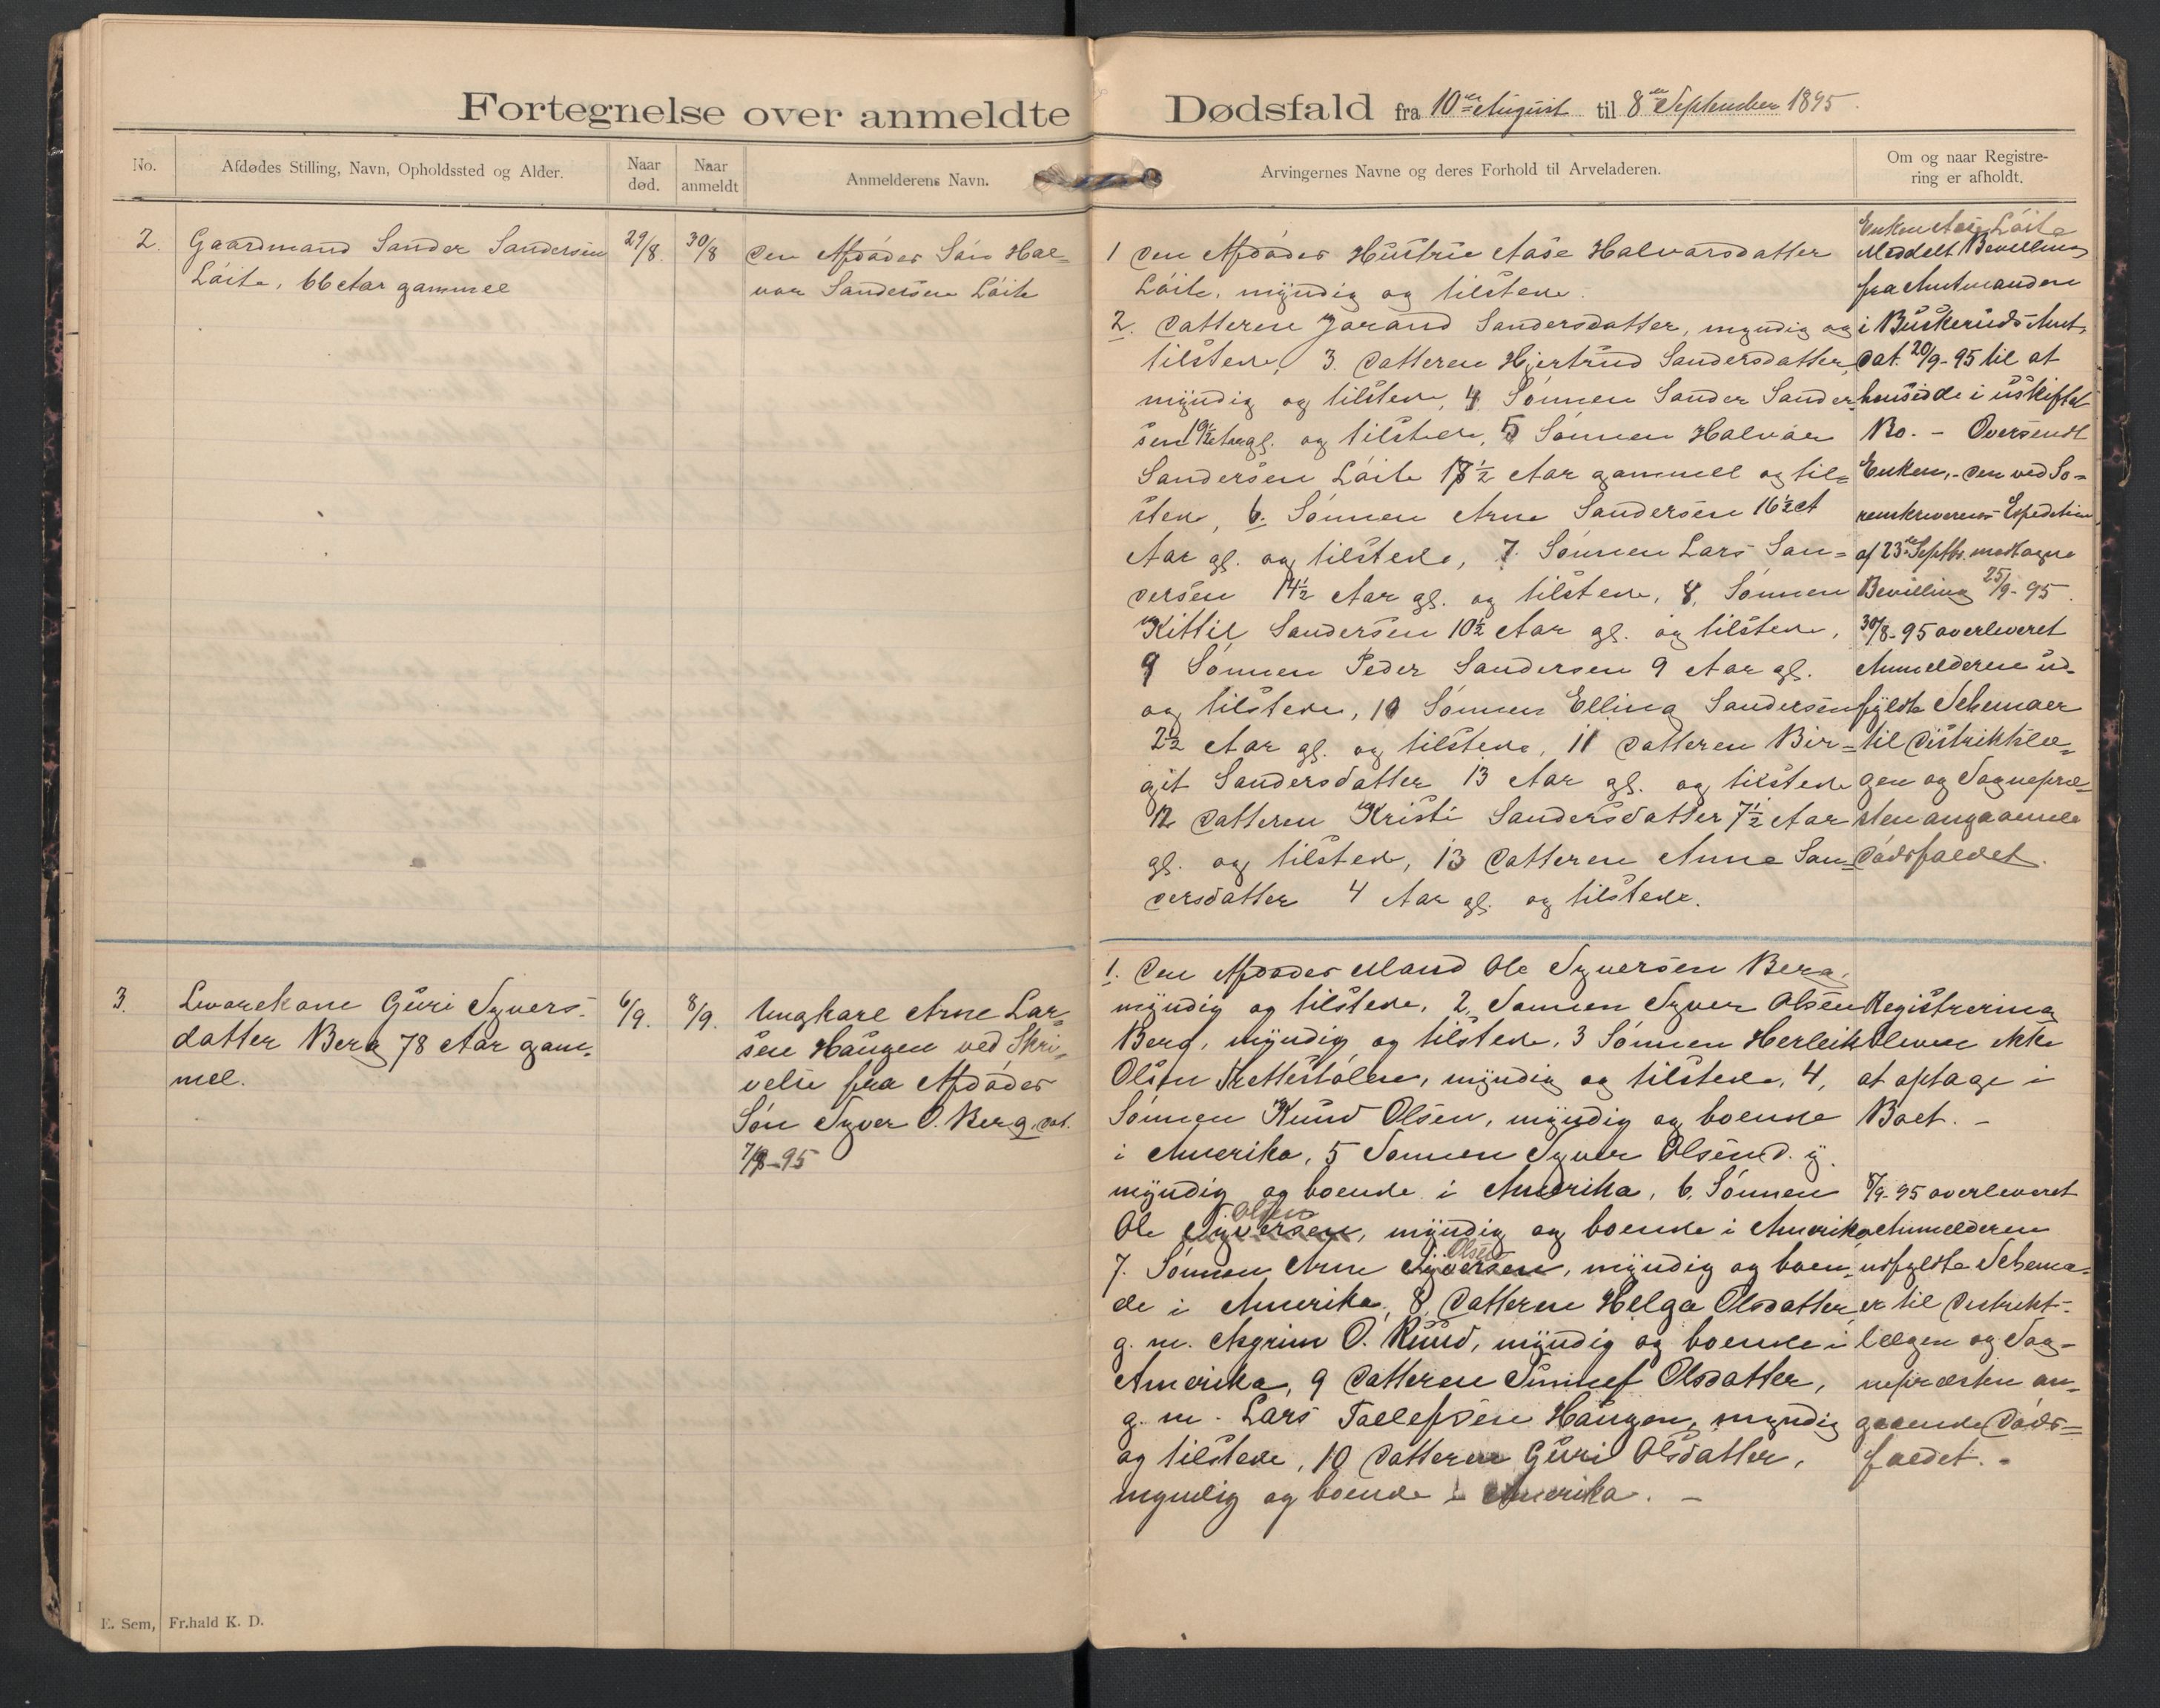 Fortegnelse over anmeldte Dødsfald fra 10de August til 8de September 1895.
No.
Afdødes Stilling, Navn, Opholdssted og Alder.
Naar død.
Naar anmeldt
Anmelderens Navn.
Arvingernes Navne og deres Forhold til Arveladeren.
Om og naar Registre-
ring er afholdt.
2.
Gaardmand Sander Sandersen
Löite, 66 Aar gammel
29/8.
30/8
Den Afdödes Sön Hal-
vor Sandersen Löite
1 Den Afdödes Hustrie Aase Halvorsdatter
Löite, myndig og tilstede.
2. Datteren Jorand Sandersdatter, myndig og
tilstede, 3. Datteren Hjertrud Sandersdatter,
myndig og tilstede, 4 Sönnen Sander Sander-
sen 19½ Aar gl. og tilstede, 5 Sönnen Halvor
Sandersen Löite 18½ Aar gammell og til-
stede, 6. Sönnen Arne Sandersen 16½ A
Aar gl. og tilstede, 7. Sönnen Lars San-
dersen 14½ Aar gl. og tilstede, 8. Sönnen
Kittil Sandersen 10½ Aar gl. og tilstede,
9 Sönnen Peder Sandersen 9 Aar gl.
og tilstede, 10 Sönnen Elling Sandersen
2½ Aar gl. og tilstede, 11 Datteren Bir-
git Sandersdatter 13 Aar gl. og tilstede
12 Datteren Kristi Sandersdatter 7½ Aar
gl. og tilstede, 13 Datteren Anne San-
dersdatter 4 Aar gl. og tilstede.
Enken Aase Löite
Meddelt Bevilling
fra Amtmanden
i Buskeruds Amt,
dat. 20/9-95 til at
hensidde i uskiftet
Bo. - Oversendt
Enken, - den ved So-
renskriverens Expedition
af 23de Septbr. modtagne
Bevilling 25/9-95.
30/8-95 overleveret
Anmelderen ud-
fyldte Schemaer
til Distriktslæ-
gen og Sognepræ-
sten angaaende
Dödsfaldet.
3.
Levarekone Guri Syvers-
datter Berg 78 Aar gam-
mel.
6/9.
8/9.
Ungkarl Arne Lar-
sen Haugen ved Skri-
velse fra Afdödes
Sön Syver O. Berg, dat.
7/9-95
1. Den Afdödes Mand Ole Syversen Berg,
myndig og tilstede, 2, Sonnen Syver Olsen
Berg, myndig og tilstede, 3 Sönnen Herleik
Olsen Trettestölen, myndig og tilstede, 4,
Sönnen Knud Olsen, myndig og boende
i Amerika, 5 Sonnen Syver Olsen d. y.
myndig og boende i Amerika, 6. Sönnen
Ole Syversen Olsen, myndig og boende i Amerika
7. Sönnen Arne Syversen Olsen, myndig og boen-
de i Amerika, 8, Datteren Helga Olsdatter
g. m. Asgrim O. Ruud, myndig og boende i
Amerika, 9 Datteren Sunnef Olsdatter,
g. m. Lars Tollefsen Haugen, myndig
og tilstede, 10 Datteren Guri Olsdatter,
myndig og boende i Amerika. -
Registrering
bleven ikke
at optage i
Boet. -
8/9-95 overleveret
Anmelderen
udfyldte Schema-
er til Distrikt-
lægen og Sog-
nepræsten an-
gaaende Döds-
faldet. -
E. Sem, Fr.hald K. D.